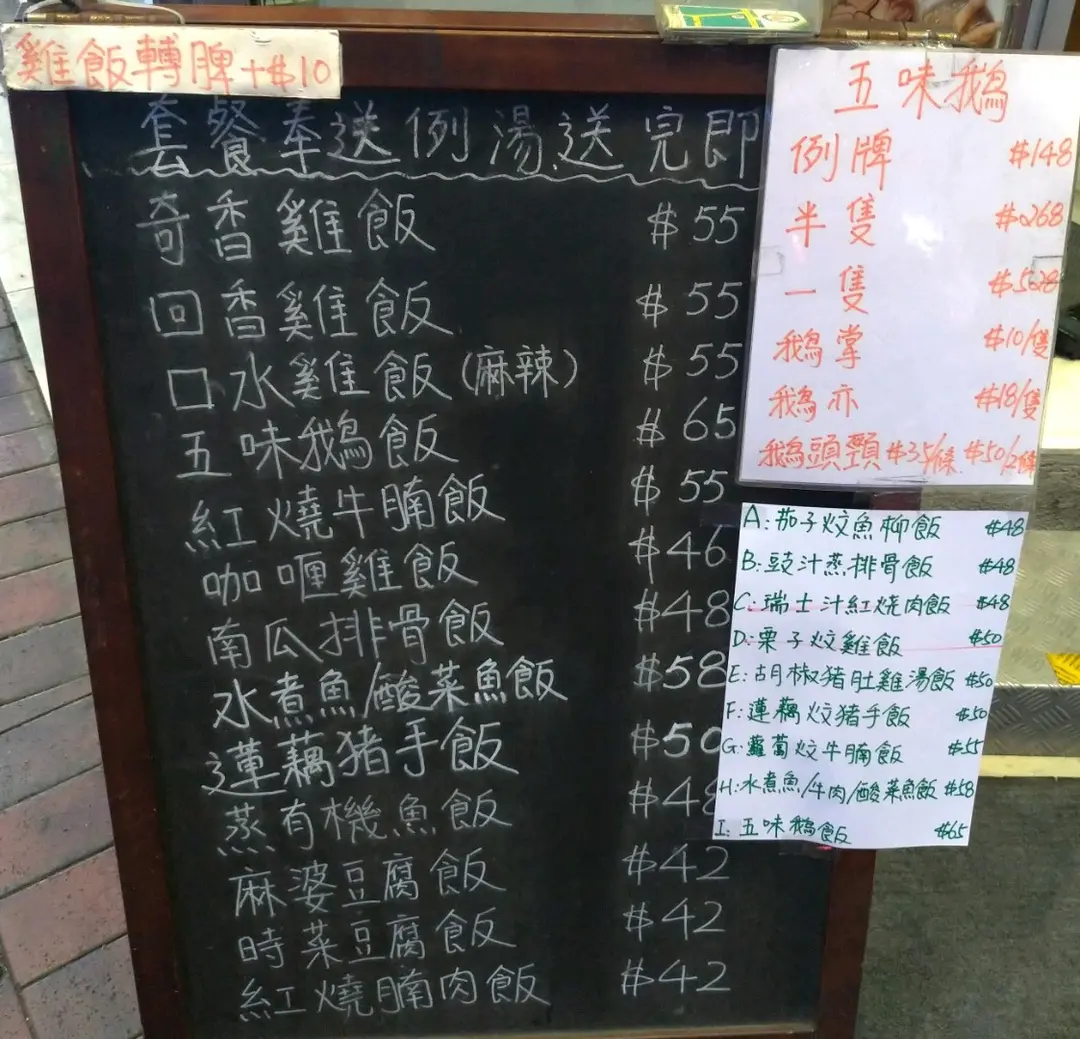 雞飯轉脾+$10
套餐奉送例湯送完即
奇香雞飯 $55
回香雞飯 $55
口水雞飯(麻辣) $55
五味鵝飯 $65
紅燒牛腩飯 $55
咖喱雞飯 $46
南瓜排骨飯 $48
水煮魚/酸菜魚飯 $58
蓮藕猪手飯 $50
蒸有機魚飯 $48
麻婆豆腐飯 $42
時菜豆腐飯 $42
紅燒腩肉飯 $42
五味鵝
例牌 $148
半隻 $268
一隻 $528
鵝掌 $10/隻
鵝亦 $18/隻
鵝頭頸 $35/條 $50/2條
A:茄子炆魚柳飯 $48
B:豉汁蒸排骨飯 $48
C:瑞士汁紅燒肉飯 $48
D:栗子炆雞飯 $50
E:胡椒猪肚雞湯飯 $50
F:蓮藕炆猪手飯 $50
G:蘿蔔炆牛腩飯 $55
H:水煮魚/牛肉/酸菜魚飯 $58
I:五味鵝飯 $65